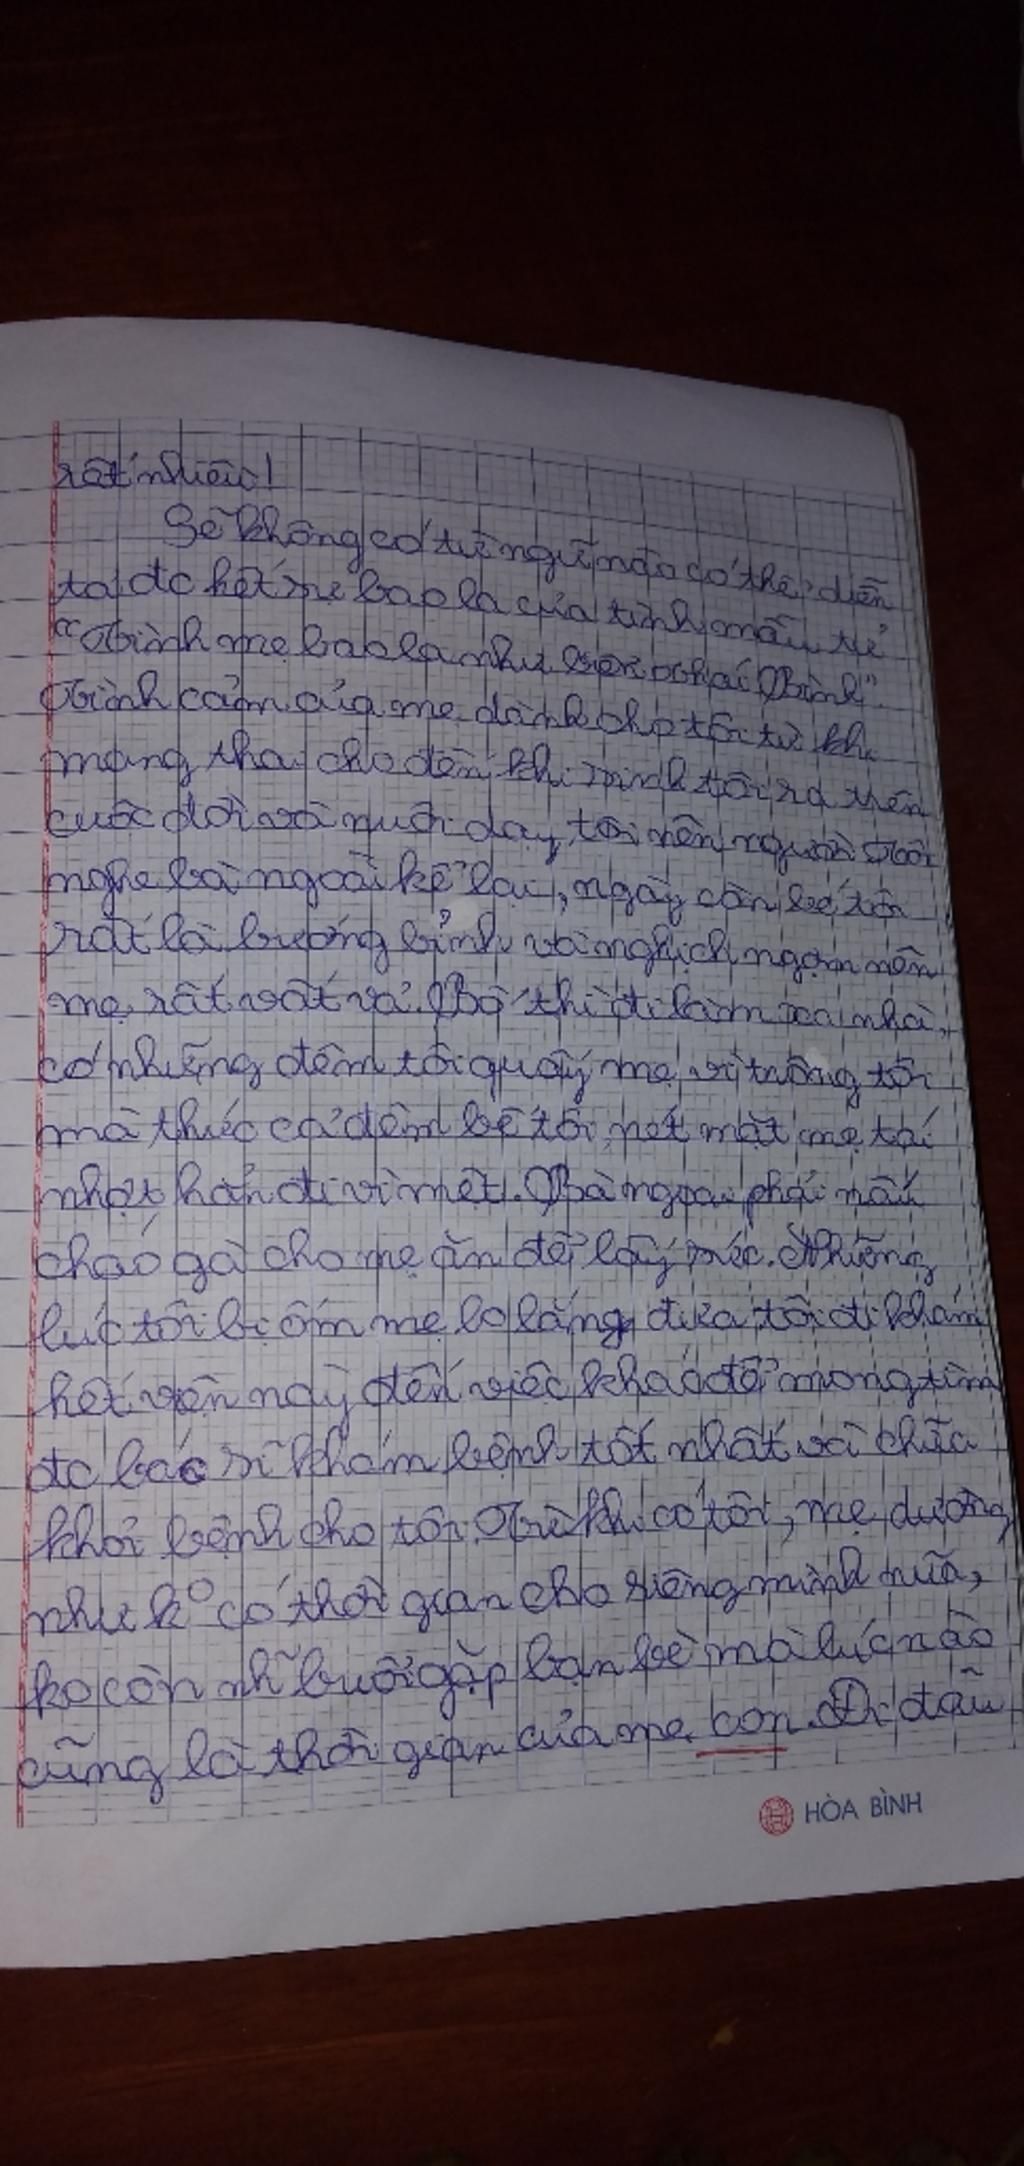 rất nhiều!
Sẽ không có từ ngữ nào có thể diễn
tả đc hết sự bao la của tình mẫu tử
"Tình mẹ bao la như biển Thái Bình".
Tình cảm của mẹ dành cho tôi từ khi
mang thai cho đến khi sinh tôi ra trên
cuộc đời và nuôi dạy tôi nên người. Tôi
nghe bà ngoại kể lại, ngày còn bé tôi
rất là bướng bỉnh và nghịch ngợm nên
mẹ rất vất vả. Bố thì đi làm xa nhà,
có những đêm tôi quấy mẹ vì trông tôi
mà thức cả đêm bế tôi, nét mặt mẹ tái
nhợt hẳn đi vì mệt. Bà ngoại phải nấu
cháo gà cho mẹ ăn để lấy sức. Những
lúc tôi bị ốm mẹ lo lắng đưa tôi đi khám
hết viện này đến việc khác để mong tìm
đc bác sĩ khám bệnh tốt nhất và chữa
khỏi bệnh cho tôi. Từ khi có tôi, mẹ dường
như ko có thời gian cho riêng mình nữa,
ko còn nh~ buổi gặp bạn bè mà lúc nào
cũng là thời gian của mẹ con. Đi đâu
HÒA BÌNH